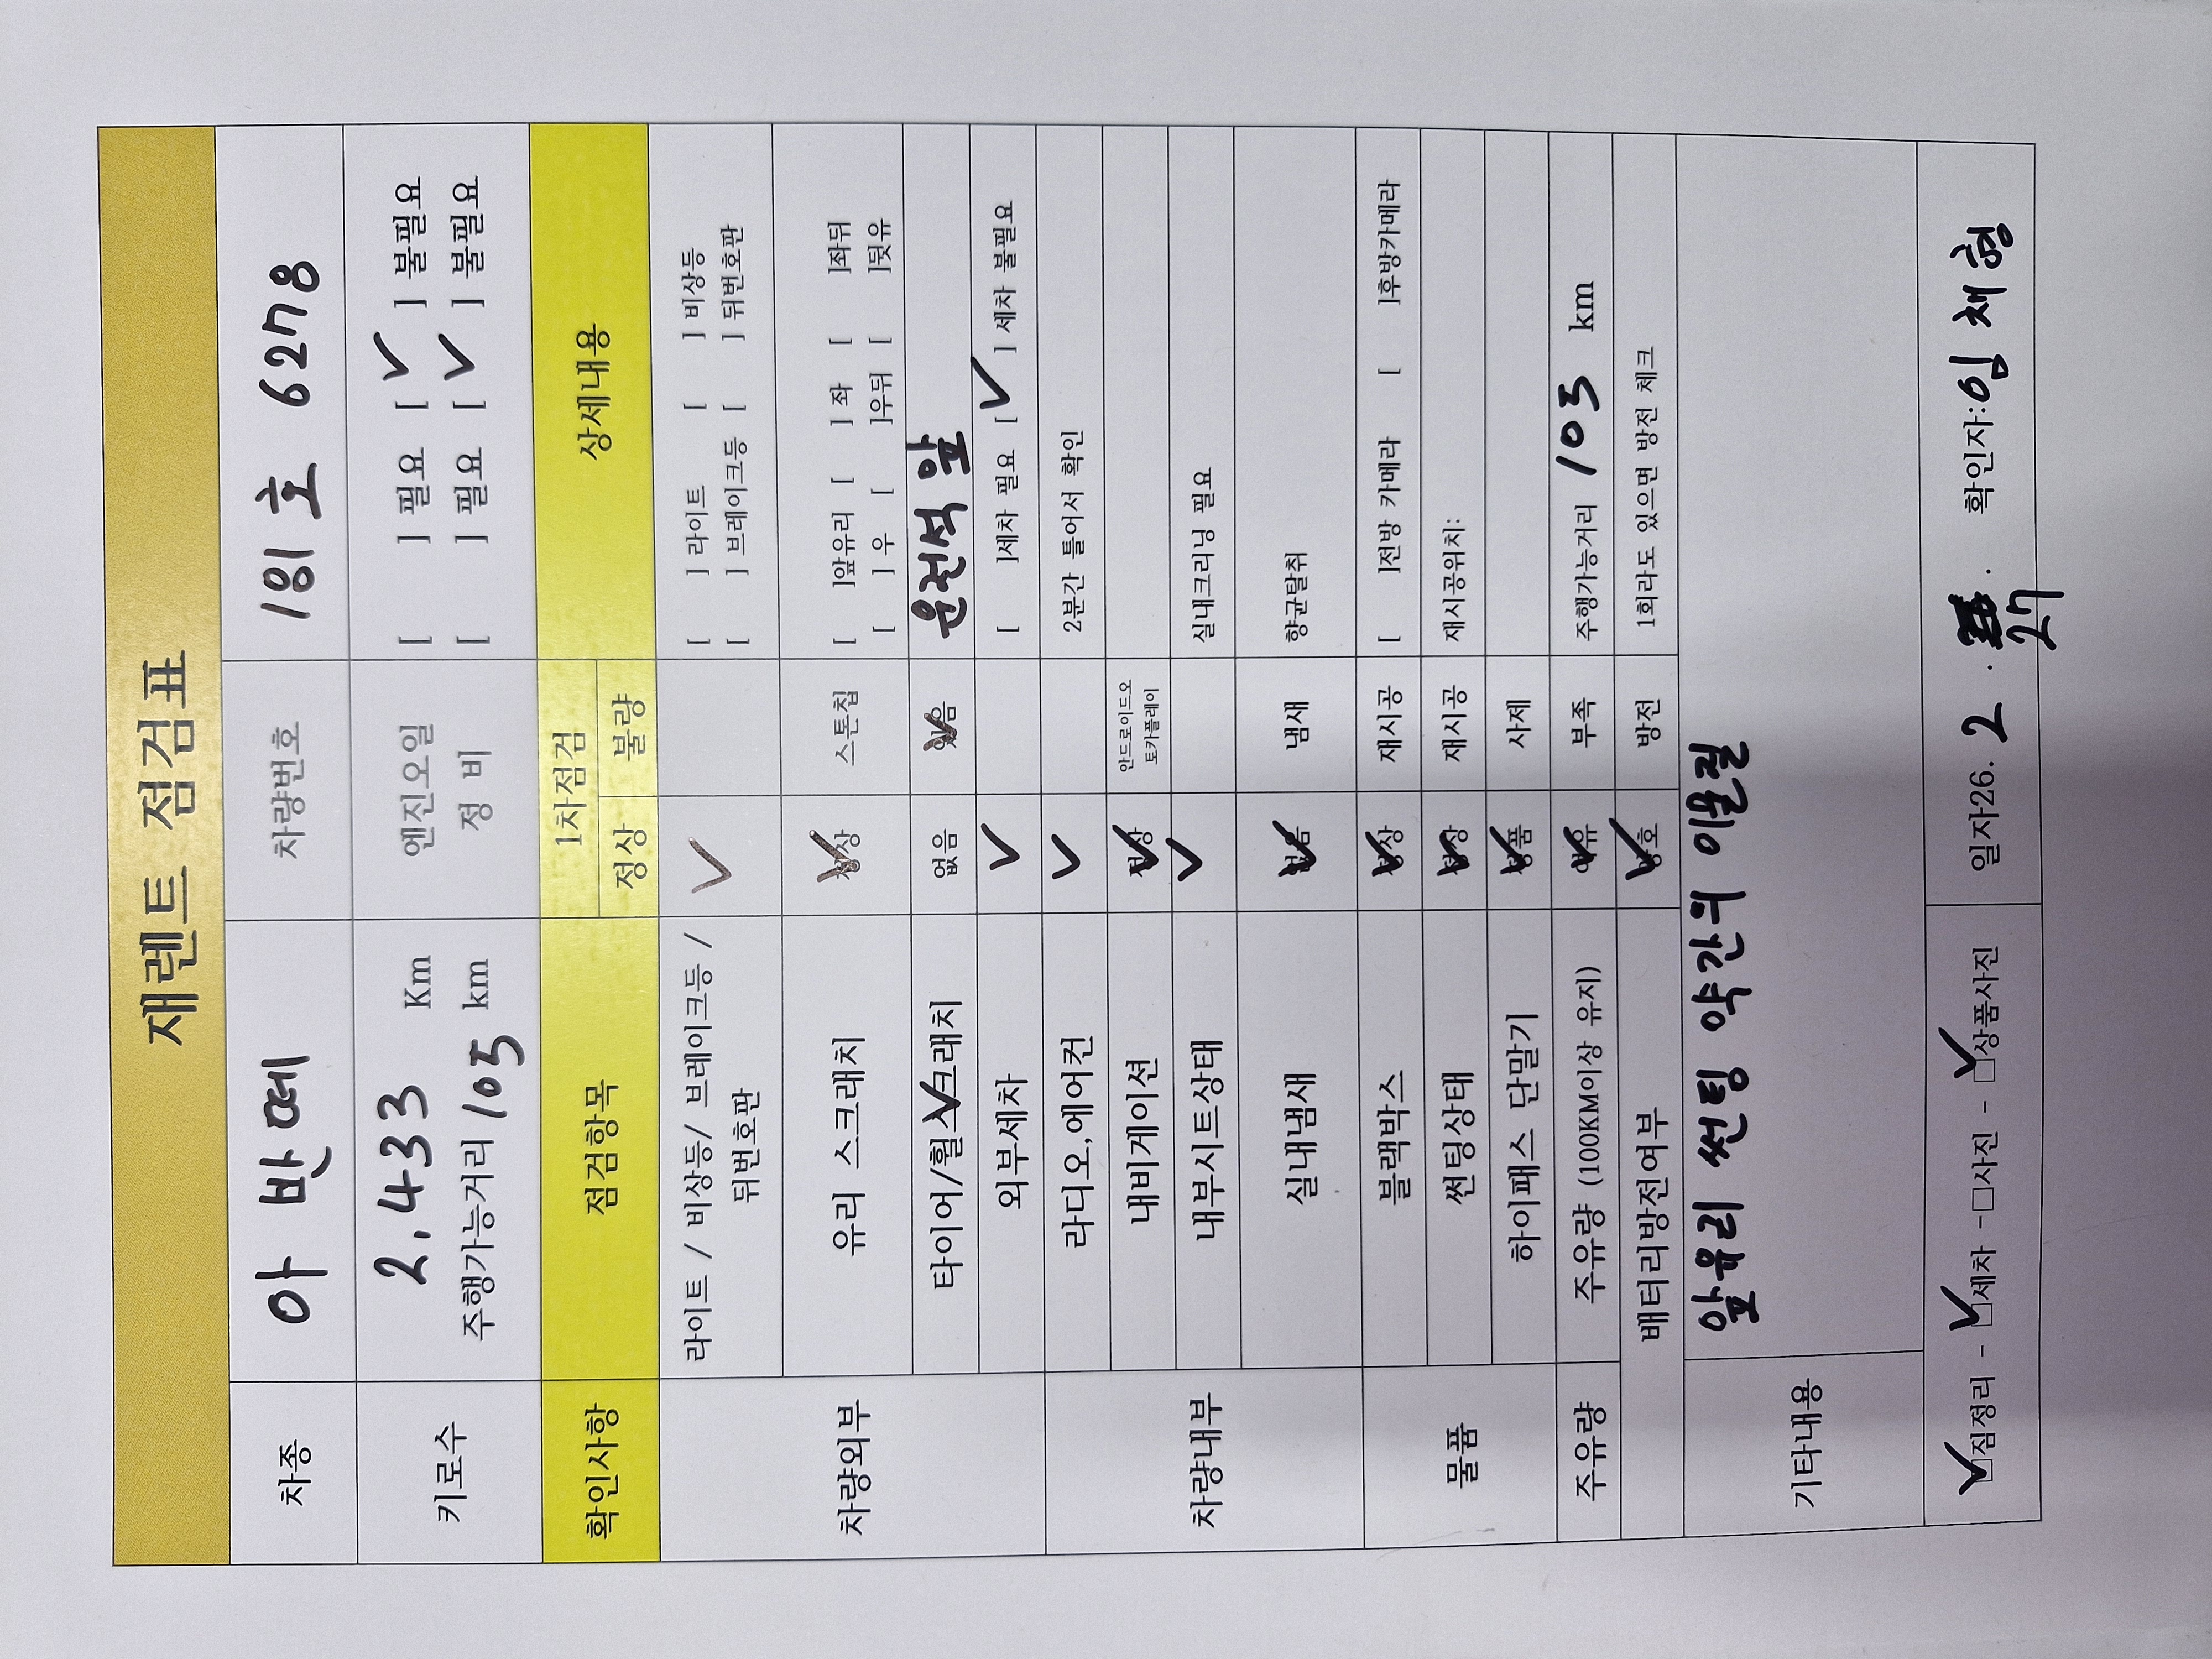 재렌트 점검표
차종 아반떼 차량번호 181호 6278
키로수 2,433 Km 엔진오일 [ ] 필요 [ ✓ ] 불필요
주행가능거리 105 km 정 비 [ ] 필요 [ ✓ ] 불필요
확인사항 점검항목 1차점검 상세내용
정상 불량
차량외부 라이트 / 비상등/ 브레이크등 / ✓ [ ] 라이트 [ ] 비상등
뒤번호판 [ ] 브레이크등 [ ] 뒤번호판
유리 스크래치 정상 ✓ 스톤칩 [ ]앞유리 [ ] 좌 [ ]좌뒤
[ ] 우 [ ]우뒤 [ ]뒷유
타이어/휠스크래치 ✓ 없음 있음 ✓ 운전석 앞
외부세차 ✓ [ ]세차 필요 [ ✓ ] 세차 불필요
차량내부 라디오,에어컨 ✓ 2분간 틀어서 확인
내비게이션 정상 ✓ 안드로이드오
토카플레이
내부시트상태 ✓ 실내크리닝 필요
실내냄새 없음 ✓ 냄새 향균탈취
물품 블랙박스 정상 ✓ 재시공 [ ]전방 카메라 [ ]후방카메라
썬팅상태 정상 ✓ 재시공 재시공위치:
하이패스 단말기 정품 ✓ 사제
주유량 주유량 (100KM이상 유지) 여유 ✓ 부족 주행가능거리 105 km
배터리방전여부 양호 ✓ 방전 1회라도 있으면 방전 체크
기타내용 앞유리 썬팅 약간의 이물질
☑짐정리 - ☑세차 -□사진 - ☑상품사진 일자26. 2 . 27 . 확인자:임채형